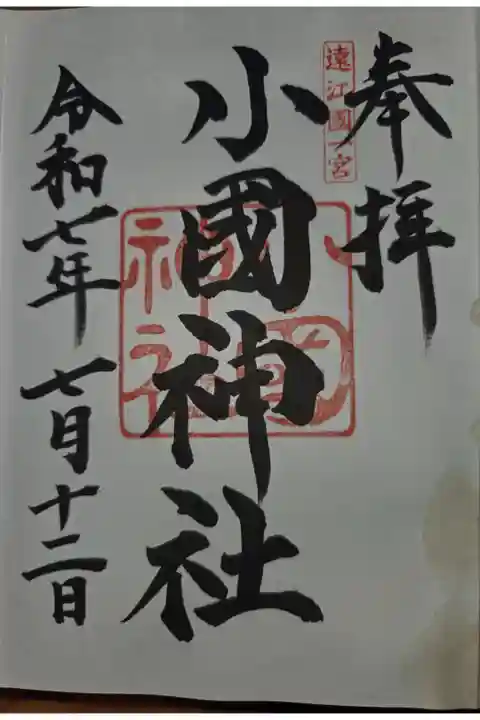 奉拝
遠江國一宮
小國神社
小國神社
令和七年 七月十二日